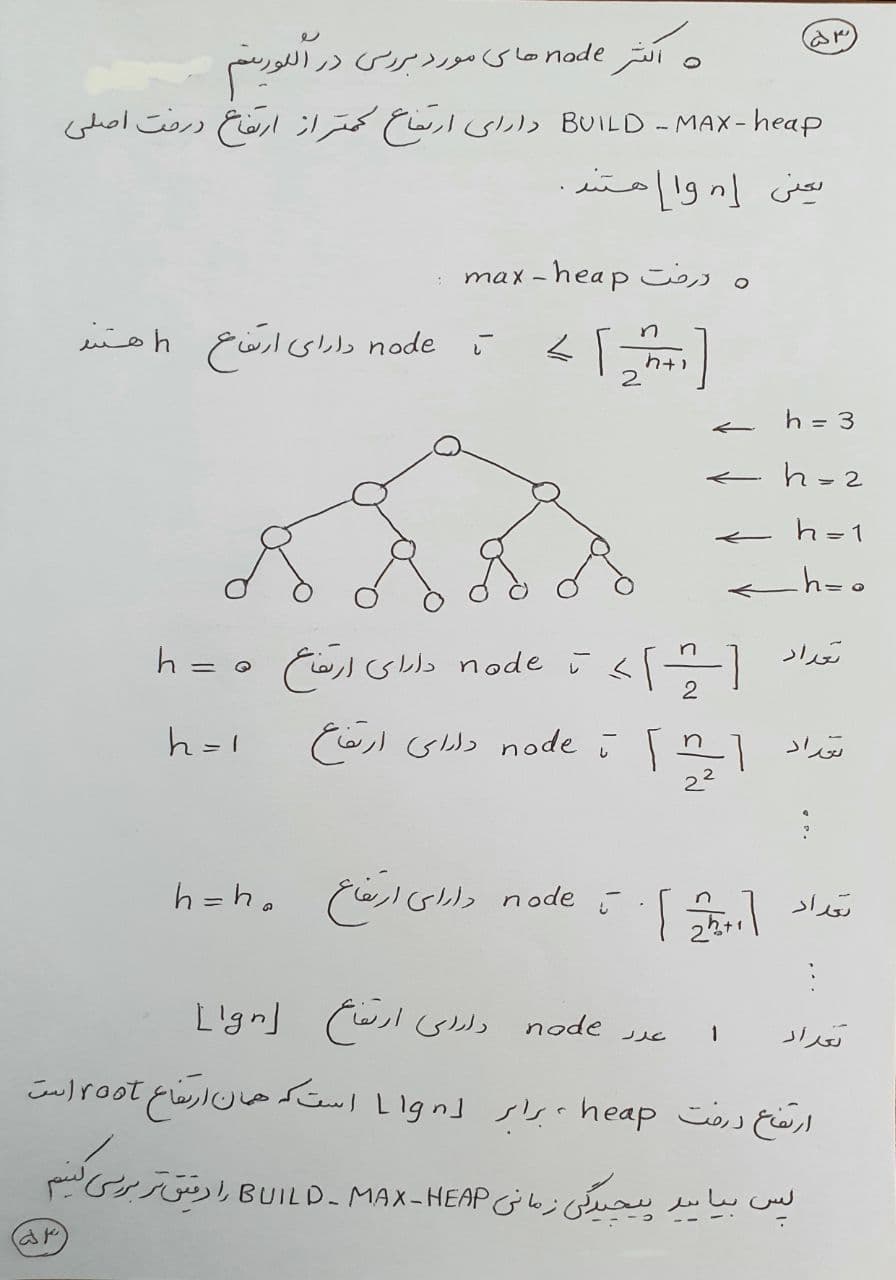 ۵۳
○ اکثر node های مورد بررسی در الگوریتم
BUILD - MAX-heap دارای ارتفاع کمتر از ارتفاع درخت اصلی
یعنی ⌊lg n⌋ هستند.
○ درخت max-heap :
≤ ⌈n/2^(h+1)⌉ تا node دارای ارتفاع h هستند
← h = 3
← h = 2
← h = 1
← h = 0
تعداد ≤ ⌈n/2⌉ تا node دارای ارتفاع h = 0
تعداد ⌈n/2²⌉ تا node دارای ارتفاع h = 1
⋮
تعداد ⌈n/2^(h₀+1)⌉ تا node دارای ارتفاع h = h₀
⋮
تعداد ۱ عدد node دارای ارتفاع ⌊lg n⌋
ارتفاع درخت heap، برابر ⌊lg n⌋ است که همان ارتفاع root است
پس بیایید پیچیدگی زمانی BUILD-MAX-HEAP را دقیق تر بررسی کنیم
۵۳